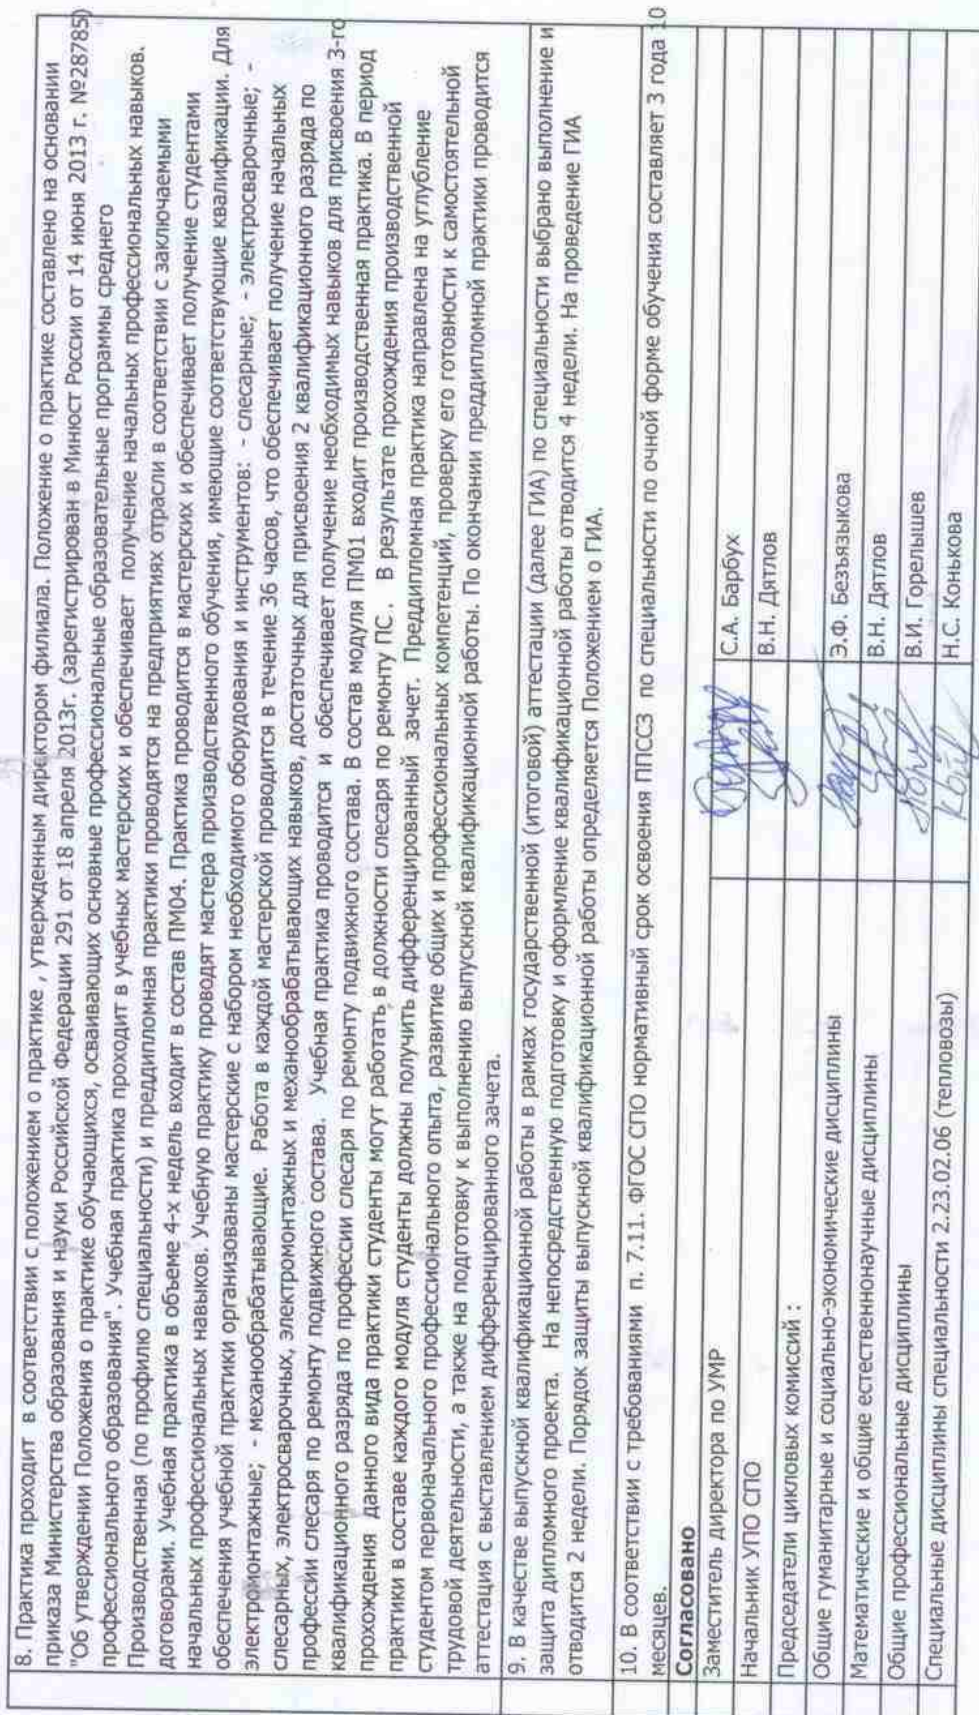 8. Практика проходит в соответствии с положением о практике , утвержденным директором филиала. Положение о практике составлено на основании
приказа Министерства образования и науки Российской Федерации 291 от 18 апреля 2013г. (зарегистрирован в Минюст России от 14 июня 2013 г. №28785)
"Об утверждении Положения о практике обучающихся, осваивающих основные профессиональные образовательные программы среднего
профессионального образования". Учебная практика проходит в учебных мастерских и обеспечивает получение начальных профессиональных навыков.
Производственная (по профилю специальности) и преддипломная практики проводятся на предприятиях отрасли в соответствии с заключаемыми
договорами. Учебная практика в объеме 4-х недель входит в состав ПМ04. Практика проводится в мастерских и обеспечивает получение студентами
начальных профессиональных навыков. Учебную практику проводят мастера производственного обучения, имеющие соответствующие квалификации. Для
обеспечения учебной практики организованы мастерские с набором необходимого оборудования и инструментов: - слесарные; - электросварочные; -
электромонтажные; - механообрабатывающие. Работа в каждой мастерской проводится в течение 36 часов, что обеспечивает получение начальных
слесарных, электросварочных, электромонтажных и механообрабатывающих навыков, достаточных для присвоения 2 квалификационного разряда по
профессии слесаря по ремонту подвижного состава. Учебная практика проводится и обеспечивает получение необходимых навыков для присвоения 3-го
квалификационного разряда по профессии слесаря по ремонту подвижного состава. В состав модуля ПМ01 входит производственная практика. В период
прохождения данного вида практики студенты могут работать в должности слесаря по ремонту ПС . В результате прохождения производственной
практики в составе каждого модуля студенты должны получить дифференцированный зачет. Преддипломная практика направлена на углубление
студентом первоначального профессионального опыта, развитие общих и профессиональных компетенций, проверку его готовности к самостоятельной
трудовой деятельности, а также на подготовку к выполнению выпускной квалификационной работы. По окончании преддипломной практики проводится
аттестация с выставлением дифференцированного зачета.
9. В качестве выпускной квалификационной работы в рамках государственной (итоговой) аттестации (далее ГИА) по специальности выбрано выполнение и
защита дипломного проекта. На непосредственную подготовку и оформление квалификационной работы отводится 4 недели. На проведение ГИА
отводится 2 недели. Порядок защиты выпускной квалификационной работы определяется Положением о ГИА.
10. В соответствии с требованиями п. 7.11. ФГОС СПО нормативный срок освоения ППССЗ по специальности по очной форме обучения составляет 3 года 10
месяцев.
Согласовано
Заместитель директора по УМР С.А. Барбух
Начальник УПО СПО В.Н. Дятлов
Председатели цикловых комиссий :
Общие гуманитарные и социально-экономические дисциплины Э.Ф. Безъязыкова
Математические и общие естественнонаучные дисциплины В.Н. Дятлов
Общие профессиональные дисциплины В.И. Горелышев
Специальные дисциплины специальности 2.23.02.06 (тепловозы) Н.С. Конькова